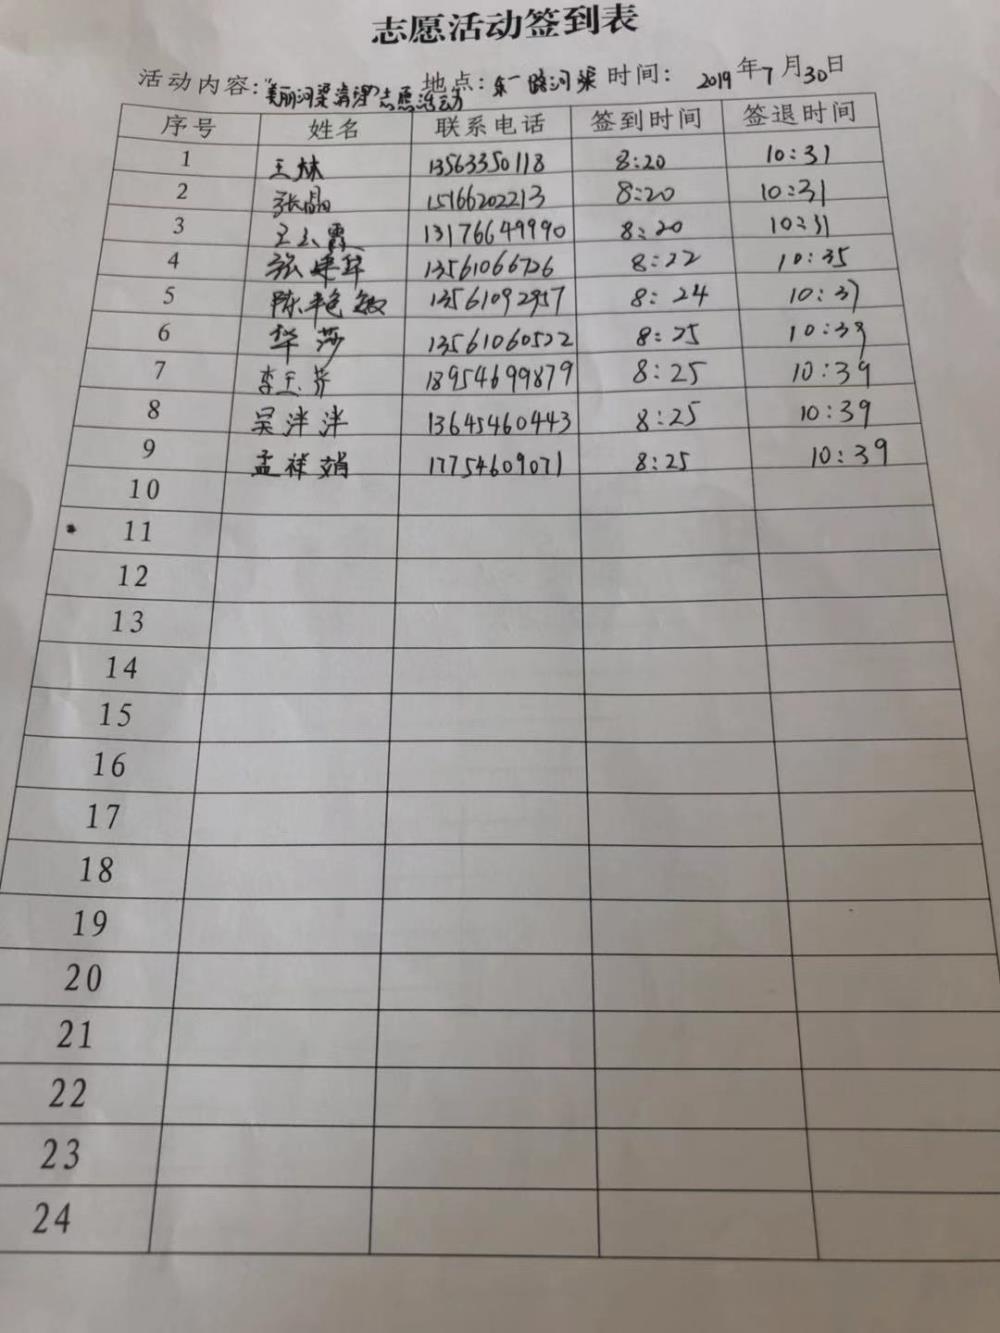 志愿活动签到表
活动内容:"美丽河渠清理"志愿活动 地点:东一路河渠 时间: 2019年7月30日
序号 姓名 联系电话 签到时间 签退时间
1 王林 13563350118 8:20 10:31
2 张晶 15166202213 8:20 10:31
3 王玉霞 13176649990 8:20 10:31
4 张建华 13561066726 8:22 10:35
5 陈艳敏 13561092957 8:24 10:37
6 华莎 13561060522 8:25 10:39
7 李玉芬 18954699879 8:25 10:39
8 吴泮泮 13645460443 8:25 10:39
9 孟祥娟 17754609071 8:25 10:39
10
11
12
13
14
15
16
17
18
19
20
21
22
23
24